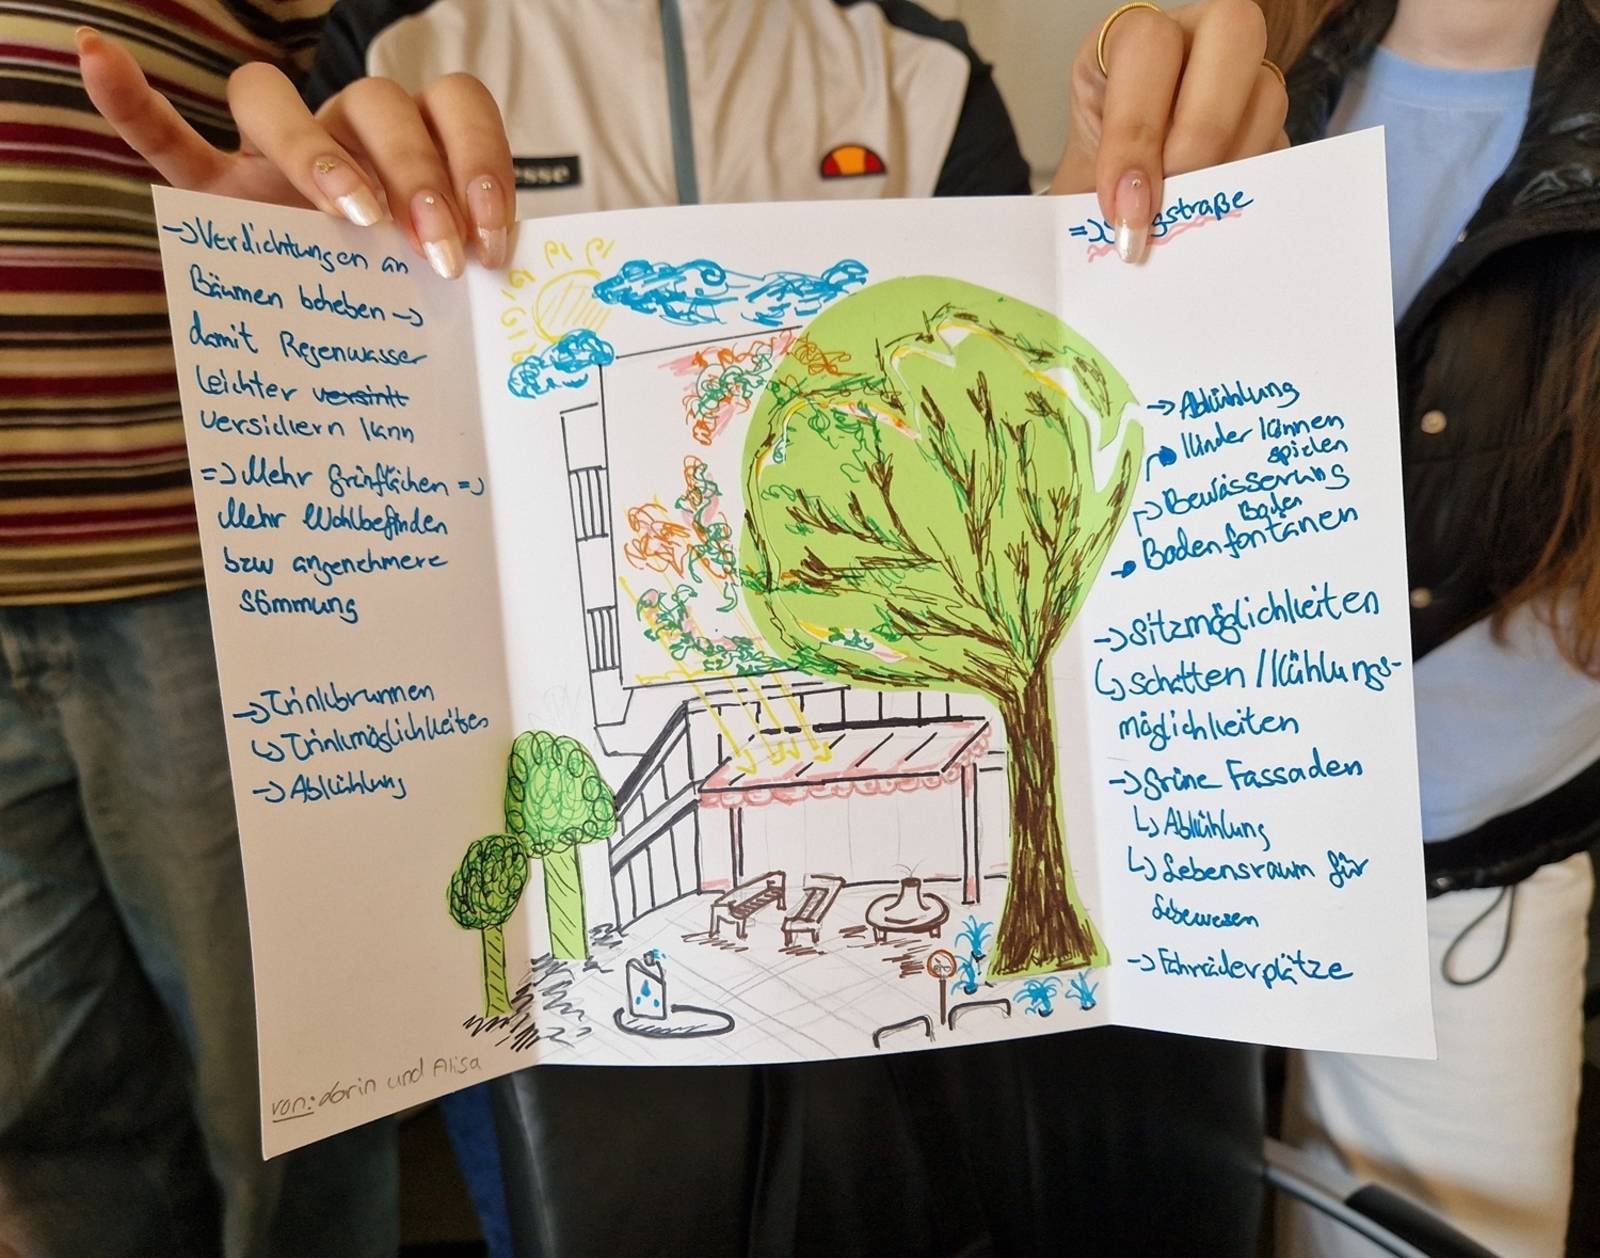 esse
→Verdichtungen an
Bäumen beheben →
damit Regenwasser
leichter versintt
versickern kann
=> Mehr Grünflächen =>
Mehr Wohlbefinden
bzw angenehmere
Stimmung
→Trinkbrunnen
↳Trinkmöglichkeiten
→Abkühlung
von: dorin und Alisa
=> gstraße
→Abkühlung
Kinder können
spielen
Bewässerung
Boden
Bodenfontänen
→Sitzmöglichkeiten
↳Schatten/Kühlungs-
möglichkeiten
→Grüne Fassaden
↳Abkühlung
↳Lebensraum für
Lebewesen
→Fahrräderplätze